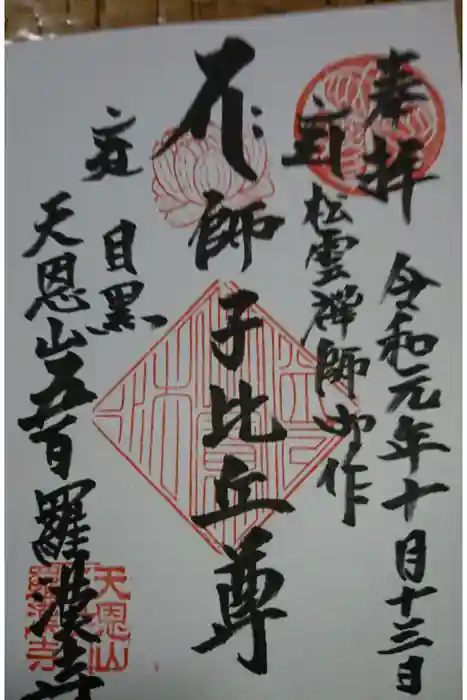 奉拝
令和元年十月十三日
松雲禅師御作
師子比丘尊
目黒
天恩山五百羅漢寺
天恩山
羅漢寺